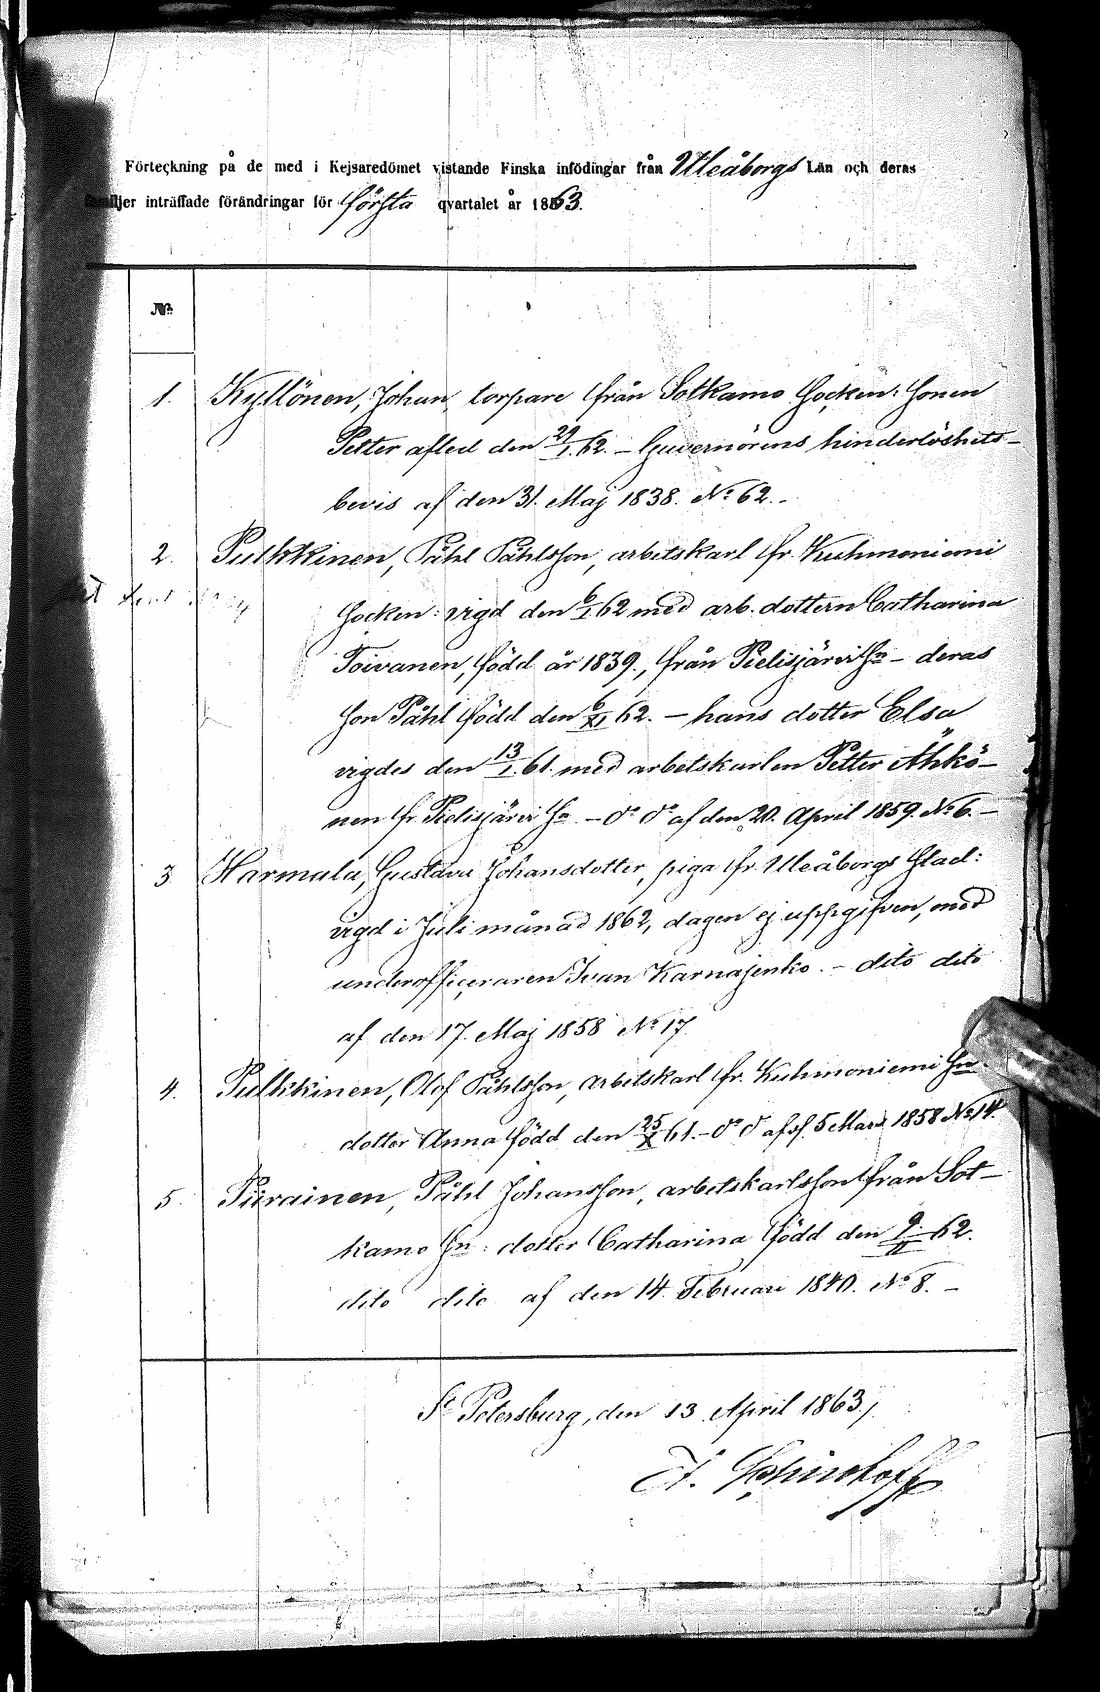 Förteckning på de med i Kejsaredömet vistande Finska infödingar från Uleåborgs Län och deras
familjer inträffade förändringar för första qvartalet år 1863.
№
1. Kyllönen, Johan, torpare från Sotkamo Socken: Sonen
Petter afled den 29/I 62. – Guvernörens hinderlöshets-
bevis af den 31. Maj 1838. №62.-
2. Pulkkinen, Påhl Påhlsson, arbetskarl fr. Kuhmoniemi
Socken: vigd den 6/I 62 med arb. dottern Catharina
Toivanen, född år 1839., från Pielisjärvi Sn – deras
son Påhl född den 6/XI 62. – hans dotter Elsa
vigdes den 13/I 61. med arbetskarlen Petter Ähkö-
nen fr. Pielisjärvi Sn. – do do af den 20. April 1859. №6. –
3. Harmala, Gustava Johansdotter, piga fr. Uleåborgs Stad:
vigd i Juli månad 1862, dagen ej uppgifven, med
underofficeraren Ivan Karnajenko. – dito dito
af den 17. Maj 1858 №17.
4. Pulkkinen, Olof Påhlsson, arbetskarl fr. Kuhmoniemi Sn:
dotter Anna född den 25/X 61. – do d af 5 Mars 1858 №14.
5. Piirainen, Påhl Johansson, arbetskarlsson från Sot-
kamo Sn: dotter Catharina född den 9/II 62.
dito dito af den 14. Februari 1840. №8. –
St Petersburg, den 13 April 1863.